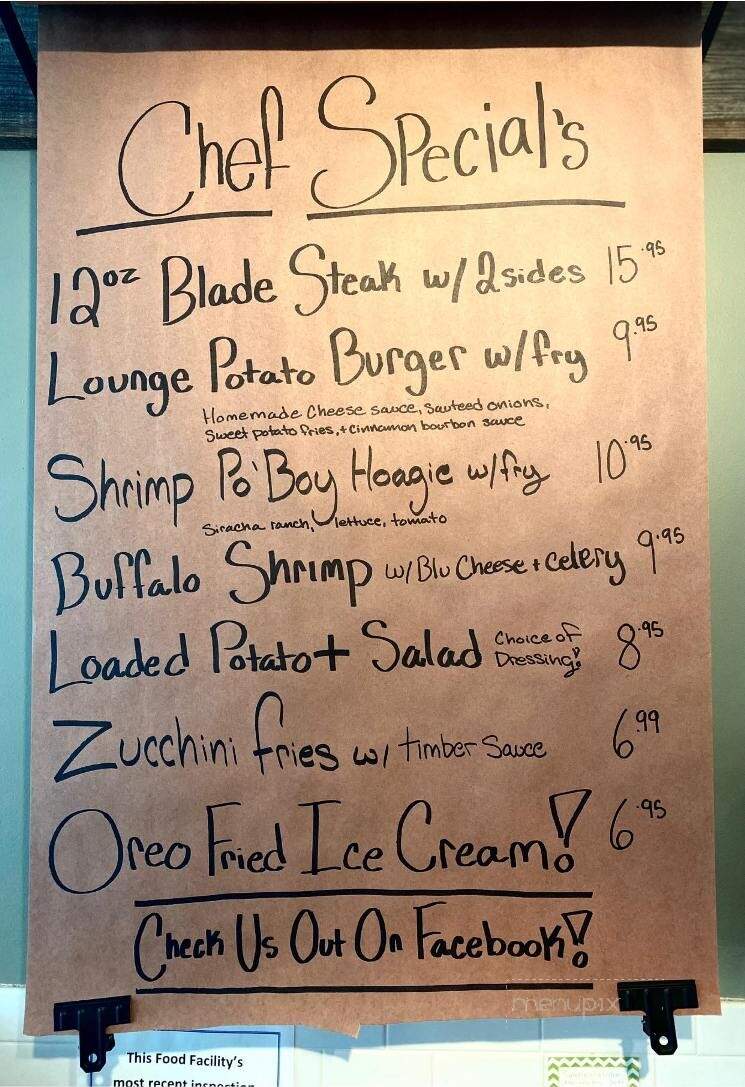 Chef Special's
12oz Blade Steak w/ 2 sides 15.95
Lounge Potato Burger w/fry 9.95
Homemade Cheese sauce, Sauteed onions,
Sweet potato fries, + Cinnamon bourbon sauce
Shrimp Po'Boy Hoagie w/fry 10.95
Siracha ranch, lettuce, tomato
Buffalo Shrimp w/ Blu Cheese + celery 9.95
Loaded Potato + Salad Choice of Dressing! 8.95
Zucchini fries w/ timber Sauce 6.99
Oreo Fried Ice Cream! 6.95
Check Us Out On Facebook!
menupix
This Food Facility's
most recent inspection